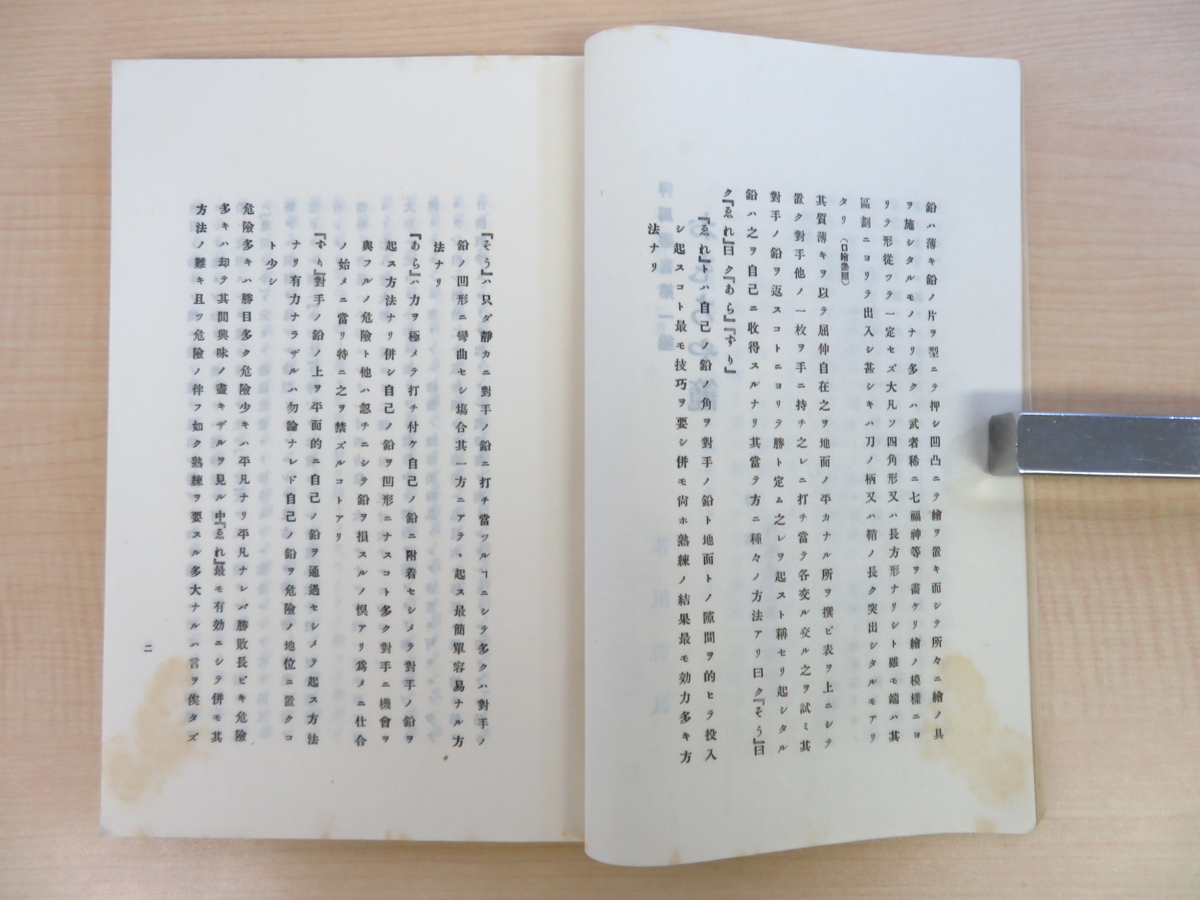 鉛ハ薄キ鉛ノ片ヲ型ニテ押シ凹凸ニテ繪ヲ置キ而シテ所々ニ繪ノ具
ヲ施シタルモノナリ多クハ武者稀ニ七福神等ヲ畫ケリ繪ノ模樣ニヨ
リテ形從フテ一定セズ大凡ソ四角形又ハ長方形ナリシト雖モ端ハ其
區劃ニヨリテ出入シ甚シキハ刀ノ柄又ハ鞘ノ長ク突出シタルモアリ
タリ(口繪參照)
其質薄キヲ以テ屈伸自在之ヲ地面ノ平カナル所ヲ撰ビ表ヲ上ニシテ
置ク對手他ノ一枚ヲ手ニ持チ之レニ打チ當テ各交ル交ル之ヲ試ミ其
對手ノ鉛ヲ返スコトニヨリテ勝ト定ム之レヲ起スト稱セリ起シタル
鉛ハ之ヲ自己ニ收得スルナリ其當テ方ニ種々ノ方法アリ曰ク『そう』曰
ク『ゑれ』曰ク『あら』『ずり』
『ゑれ』トハ自己ノ鉛ノ角ヲ對手ノ鉛ト地面トノ隙間ヲ的ヒテ投入
シ起スコト最モ技巧ヲ要シ併モ尙ホ熟練ノ結果最モ効力多キ方
法ナリ
『そう』ハ只ダ靜カニ對手ノ鉛ニ打チ當ツルヿニシテ多クハ對手ノ
鉛ノ凹形ニ彎曲セシ塲合其一方ニアテ、起ス最簡單容易ナル方
法ナリ
『あら』ハ力ヲ極メテ打チ付ケ自己ノ鉛ニ附着セシメテ對手ノ鉛ヲ
起ス方法ナリ併シ自己ノ鉛ヲ凹形ニナスコト多ク對手ニ機會ヲ
與フルノ危險ト他ハ忽チニシテ鉛ヲ損スルノ惧アリ爲メニ仕合
ノ始メニ當リ特ニ之ヲ禁ズルコトアリ
『ずり』對手ノ鉛ノ上ヲ平面的ニ自己ノ鉛ヲ通過セシメテ起ス方法
ナリ有力ナラザルハ勿論ナレド自己ノ鉛ヲ危險ノ地位ニ置クコ
ト少シ
危險多キハ勝目多ク危險少キハ平凡ナリ平凡ナレバ勝敗長ビキ危險
多キハ却テ其間興味ノ盡キザルヲ見ル中『ゑれ』最モ有効ニシテ併モ其
方法ノ難キ且ツ危險ノ伴フ如ク熟練ヲ要スル多大ナルハ言ヲ俟タズ
二